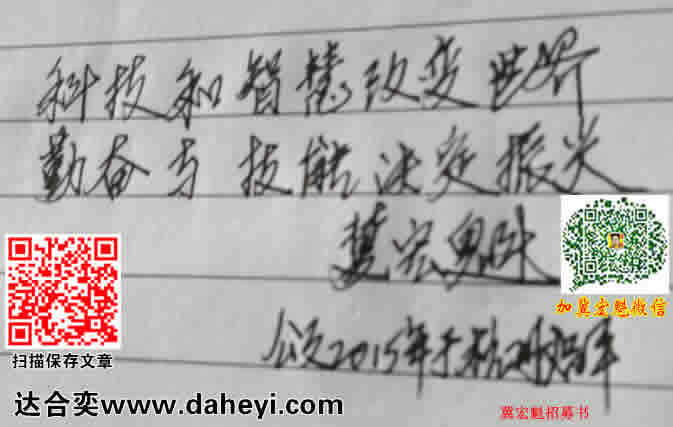 科技和智慧改变世界
勤奋与技能决定振兴
冀宏魁
2015年于杭州
加冀宏魁微信
扫描保存文章
达合奕www.daheyi.com
冀宏魁招募书